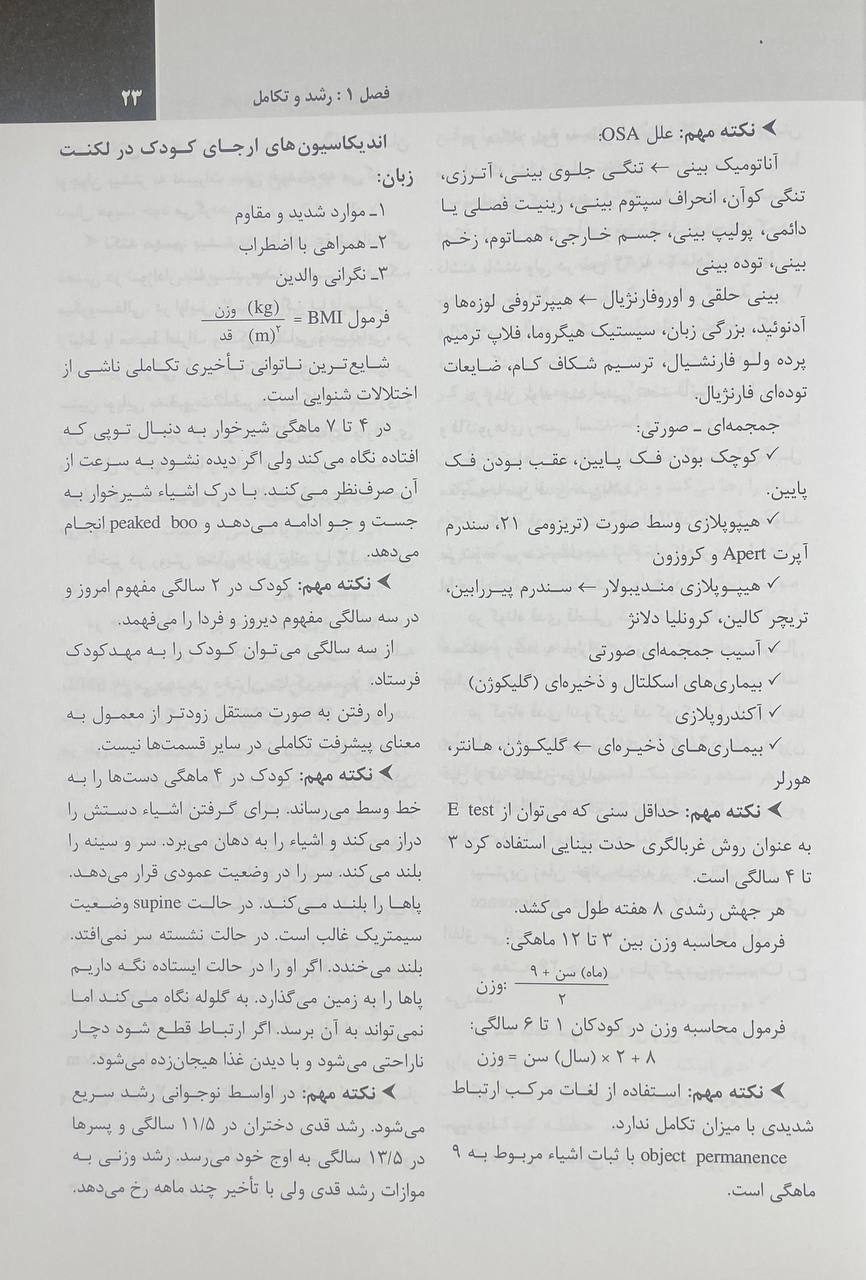 فصل ۱: رشد و تکامل
۲۳
نکته مهم: علل OSA:
آناتومیک بینی ← تنگی جلوی بینی، آترزی،
تنگی کوآن، انحراف سپتوم بینی، رینیت فصلی یا
دائمی، پولیپ بینی، جسم خارجی، هماتوم، زخم
بینی، توده بینی
بینی حلقی و اوروفارنژیال ← هیپرتروفی لوزه‌ها و
آدنوئید، بزرگی زبان، سیستیک هیگروما، فلاپ ترمیم
پرده ولو فارنشیال، ترسیم شکاف کام، ضایعات
توده‌ای فارنژیال.
جمجمه‌ای ـ صورتی:
✓ کوچک بودن فک پایین، عقب بودن فک
پایین.
✓ هیپوپلازی وسط صورت (تریزومی ۲۱، سندرم
آپرت Apert و کروزون
✓ هیپوپلازی مندیبولار ← سندرم پیررابین،
تریچر کالین، کرونلیا دلانژ
✓ آسیب جمجمه‌ای صورتی
✓ بیماری‌های اسکلتال و ذخیره‌ای (گلیکوژن)
✓ آکندروپلازی
✓ بیماری‌های ذخیره‌ای ← گلیکوژن، هانتر،
هورلر
نکته مهم: حداقل سنی که می‌توان از E test
به عنوان روش غربالگری حدت بینایی استفاده کرد ۳
تا ۴ سالگی است.
هر جهش رشدی ۸ هفته طول می‌کشد.
فرمول محاسبه وزن بین ۳ تا ۱۲ ماهگی:
(ماه) سن + ۹
وزن:
۲
فرمول محاسبه وزن در کودکان ۱ تا ۶ سالگی:
۸ + ۲ × (سال) سن = وزن
نکته مهم: استفاده از لغات مرکب ارتباط
شدیدی با میزان تکامل ندارد.
object permanence با ثبات اشیاء مربوط به ۹
ماهگی است.
اندیکاسیون‌های ارجای کودک در لکنت
زبان:
۱ـ موارد شدید و مقاوم
۲ـ همراهی با اضطراب
۳ـ نگرانی والدین
وزن (kg)
فرمول BMI =
قد (m)²
شایع‌ترین ناتوانی تأخیری تکاملی ناشی از
اختلالات شنوایی است.
در ۴ تا ۷ ماهگی شیرخوار به دنبال توپی که
افتاده نگاه می‌کند ولی اگر دیده نشود به سرعت از
آن صرف‌نظر می‌کند. با درک اشیاء شیرخوار به
جست و جو ادامه می‌دهد و peaked boo انجام
می‌دهد.
نکته مهم: کودک در ۲ سالگی مفهوم امروز و
در سه سالگی مفهوم دیروز و فردا را می‌فهمد.
از سه سالگی می‌توان کودک را به مهدکودک
فرستاد.
راه رفتن به صورت مستقل زودتر از معمول به
معنای پیشرفت تکاملی در سایر قسمت‌ها نیست.
نکته مهم: کودک در ۴ ماهگی دست‌ها را به
خط وسط می‌رساند. برای گرفتن اشیاء دستش را
دراز می‌کند و اشیاء را به دهان می‌برد. سر و سینه را
بلند می‌کند. سر را در وضعیت عمودی قرار می‌دهد.
پاها را بلند می‌کند. در حالت supine وضعیت
سیمتریک غالب است. در حالت نشسته سر نمی‌افتد.
بلند می‌خندد. اگر او را در حالت ایستاده نگه داریم
پاها را به زمین می‌گذارد. به گلوله نگاه می‌کند اما
نمی‌تواند به آن برسد. اگر ارتباط قطع شود دچار
ناراحتی می‌شود و با دیدن غذا هیجان‌زده می‌شود.
نکته مهم: در اواسط نوجوانی رشد سریع
می‌شود. رشد قدی دختران در ۱۱/۵ سالگی و پسرها
در ۱۳/۵ سالگی به اوج خود می‌رسد. رشد وزنی به
موازات رشد قدی ولی با تأخیر چند ماهه رخ می‌دهد.